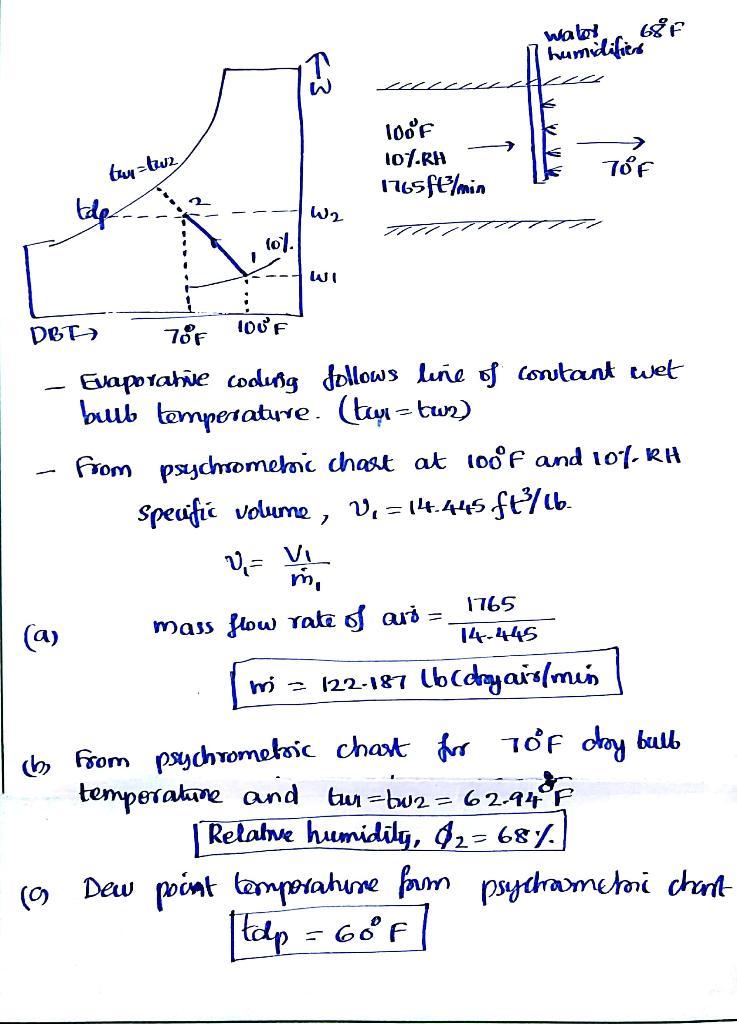 water 68°F
humidifier
↑
W
100°F
10%.RH
1765 ft³/min
70°F
tw1=tw2
tdp
2
W2
1
10%.
W1
DBT→
70°F
100°F
- Evaporative cooling follows line of constant wet
bulb temperature. (tw1 = tw2)
- From psychrometric chart at 100°F and 10%. RH
specific volume, V1 = 14.445 ft³/lb.
V1 = V1/ṁ1
(a) mass flow rate of air = 1765/14.445
ṁ = 122.187 lb(dry air/min
(b) From psychrometric chart for 70°F dry bulb
temperature and tw1 = tw2 = 62.94°F
Relative humidity, ϕ2 = 68%.
(c) Dew point temperature from psychrometric chart
tdp = 60°F